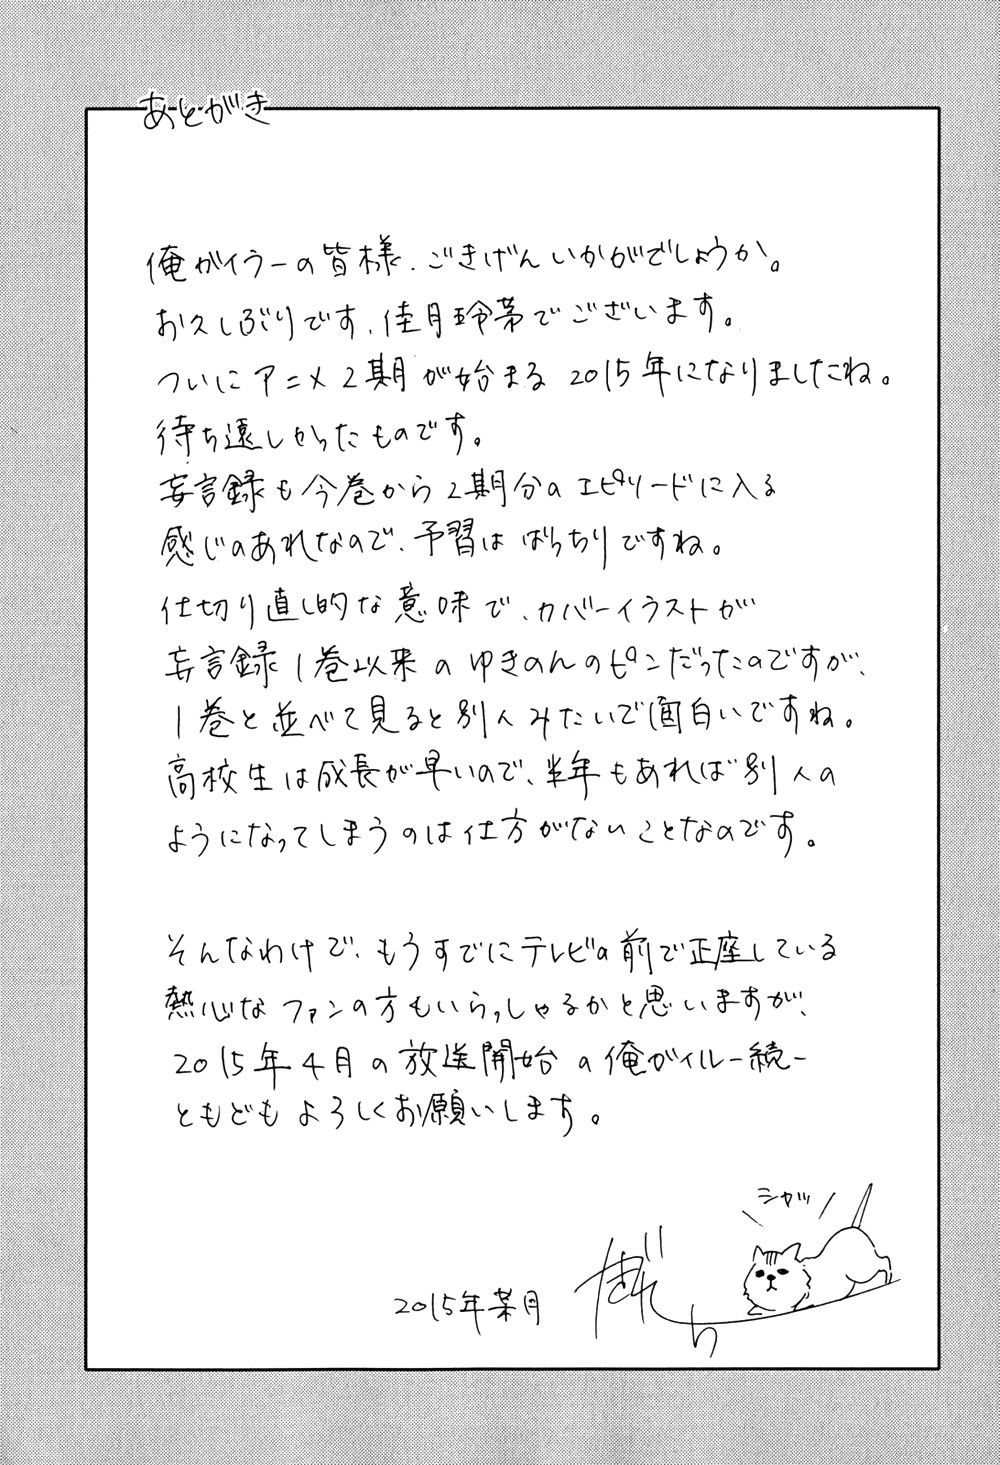 あとがき
俺ガイラーの皆様、ごきげんいかがでしょうか。
お久しぶりです、佳月玲茅でございます。
ついにアニメ2期が始まる2015年になりましたね。
待ち遠しかったものです。
妄言録も今巻から2期分のエピソードに入る
感じのあれなので、予習はばっちりですね。
仕切り直し的な意味で、カバーイラストが
妄言録1巻以来のゆきのんのピンだったのですが、
1巻と並べて見ると別人みたいで面白いですね。
高校生は成長が早いので、半年もあれば別人の
ようになってしまうのは仕方がないことなのです。
そんなわけで、もうすでにテレビの前で正座している
熱心なファンの方もいらっしゃるかと思いますが、
2015年4月の放送開始の俺ガイル-続-
ともどもよろしくお願いします。
シャッ
2015年某月